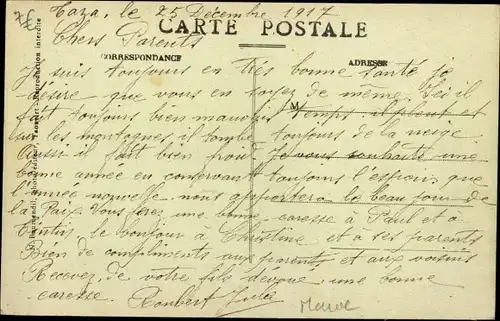 7€
Taza, le 25 Décembre 1917
CARTE POSTALE
Chers Parents
CORRESPONDANCE
ADRESSE
Je suis toujours en très bonne santé je
désire que vous en soyez de même. Ici il
fait toujours bien mauvais temps il pleut et
M
sur les montagnes il tombe toujours de la neige
aussi il fait bien froid Je vous souhaite une
bonne année en conservant toujours l'espoir que
l'année nouvelle nous apportera le beau jour de
la Paix. Vous ferez une bonne caresse à Paul et à
le bonjour à Christine et à ses parents
Bien de compliments aux parents et aux voisins
Recevez de votre fils dévoué une bonne
caresse Jules
Maroc
Reproduction interdite